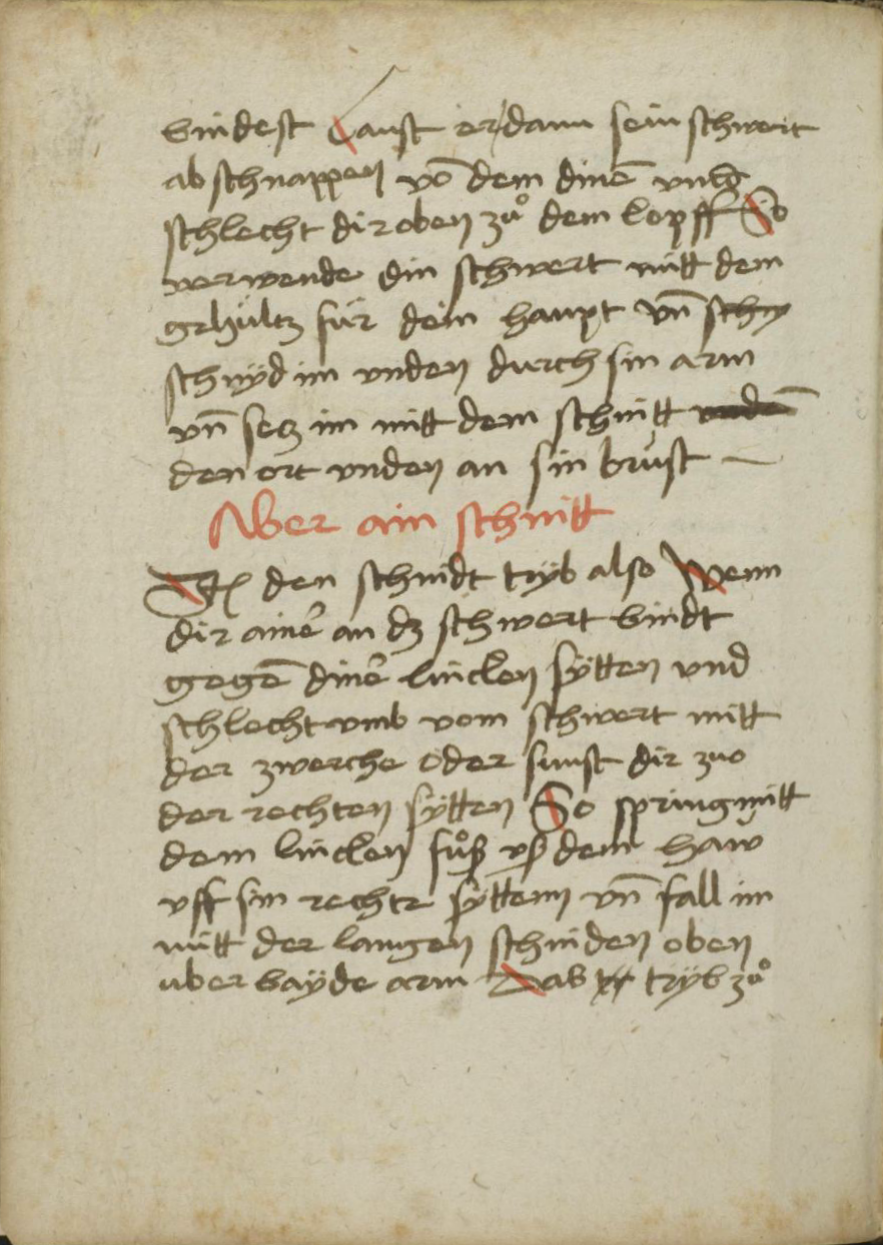 bindest Laust er dann sein schwert
ab schnappen vō dem dinē vnd
schlecht dir oben zuͦ dem kopff So
verwende din schwert mitt dem
gehültz für dein haupt vn̄
schnÿd im vnden durch sin arm
vn̄ secz im mitt dem schnitt
den ort vnden an sin brust –
Aber ain schnitt
Itē den schnidt tryb also Wenn
dir ainer an dz schwert bindt
gegē diner lincken sÿtten vnd
schlecht vmb vom schwert mitt
der zwerche oder sunst dir zuo
der rechten sÿtten So spring mitt
dem lincken fuͦß vß dem haw
vff sin rechte sÿtten vn̄ fall im
mitt der langen schniden oben
uber baÿde arm Das tryb zuͦ